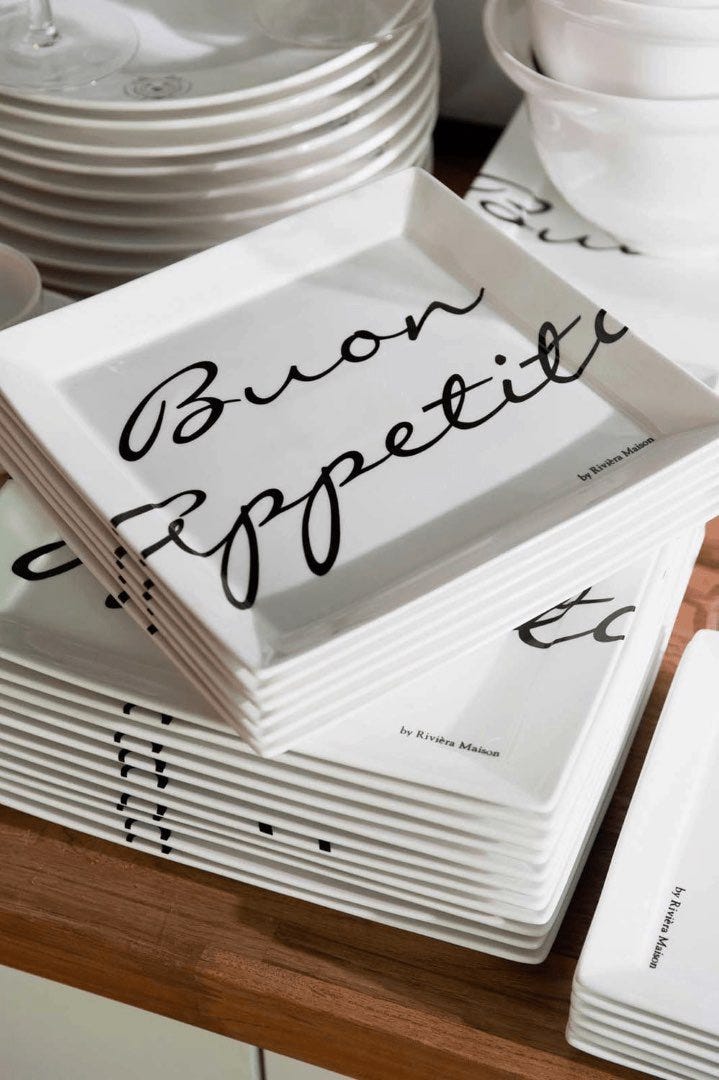 Buon
Appetito
by Rivièra Maison
Buon
to
by Rivièra Maison
by Rivièra Maison